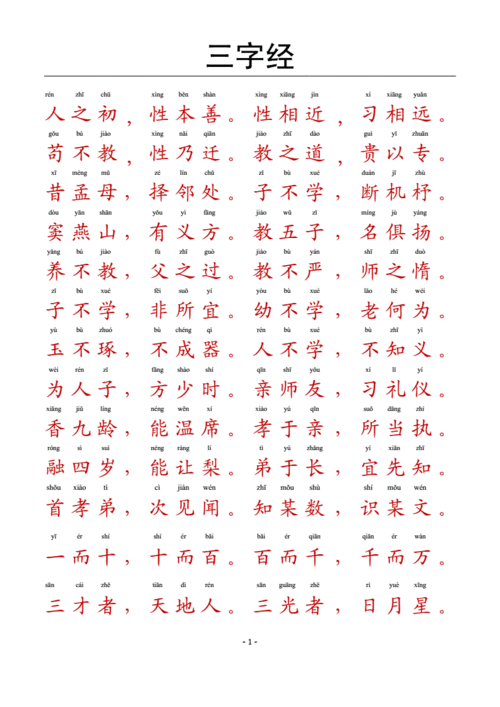 三字经
rén zhī chū xìng běn shàn xìng xiāng jìn xí xiāng yuǎn
人之初，性本善。性相近，习相远。
gǒu bú jiào xìng nǎi qiān jiào zhī dào guì yǐ zhuān
苟不教，性乃迁。教之道，贵以专。
xī mèng mǔ zé lín chǔ zǐ bù xué duàn jī zhù
昔孟母，择邻处。子不学，断机杼。
dòu yān shān yǒu yì fāng jiào wǔ zǐ míng jù yáng
窦燕山，有义方。教五子，名俱扬。
yǎng bú jiào fù zhī guò jiào bù yán shī zhī duò
养不教，父之过。教不严，师之惰。
zǐ bù xué fēi suǒ yí yòu bù xué lǎo hé wéi
子不学，非所宜。幼不学，老何为。
yù bù zhuó bù chéng qì rén bù xué bù zhī yì
玉不琢，不成器。人不学，不知义。
wéi rén zǐ fāng shào shí qīn shī yǒu xí lǐ yí
为人子，方少时。亲师友，习礼仪。
xiāng jiǔ líng néng wēn xí xiào yú qīn suǒ dāng zhí
香九龄，能温席。孝于亲，所当执。
róng sì suì néng ràng lí tì yú zhǎng yí xiān zhī
融四岁，能让梨。弟于长，宜先知。
shǒu xiào tì cì jiàn wén zhī mǒu shù shí mǒu wén
首孝弟，次见闻。知某数，识某文。
yī ér shí shí ér bǎi bǎi ér qiān qiān ér wàn
一而十，十而百。百而千，千而万。
sān cái zhě tiān dì rén sān guāng zhě rì yuè xīng
三才者，天地人。三光者，日月星。
- 1 -